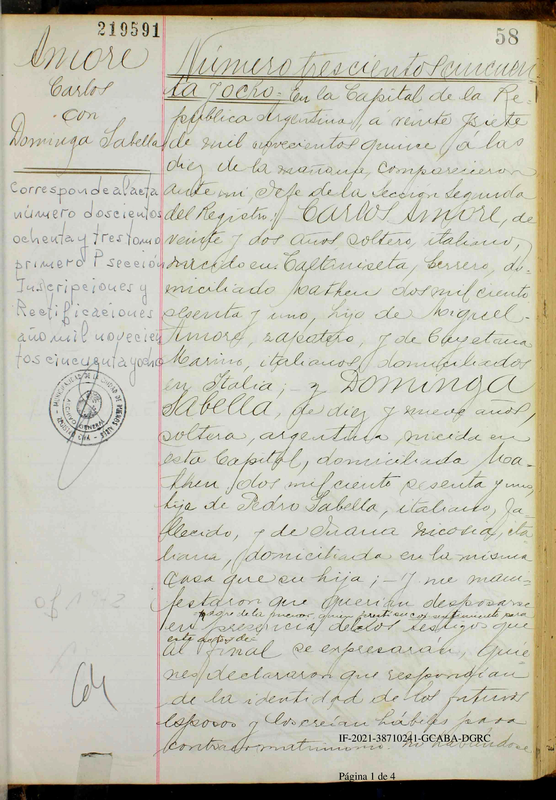 219591
58
Amore
Carlos
con
Dominga Sabella
Corresponde al acta
número doscientos
ochenta y tres tomo
primero P sección
Inscripciones y
Rectificaciones
año mil novecien
tos cincuenta y ocho
Número trescientos cincuen
ta y ocho. En la Capital de la Re-
pública Argentina, a veinte y siete
de mil novecientos quince, á las
diez de la mañana, comparecieron
ante mi, Jefe de la Sección Segunda
del Registro, Carlos Amore, de
veinte y dos años, soltero, italiano,
nacido en Caltaniseta, herrero, do-
miciliado Matheu dos mil ciento
sesenta y uno, hijo de Miguel
Amore, zapatero, y de Cayetana
Marino, italianos, domiciliados
en Italia; y Dominga
Sabella, de diez y nueve años,
soltera, argentina, nacida en
esta Capital, domiciliada Ma-
theu dos mil ciento sesenta y uno,
hija de Pedro Sabella, italiano, fa-
llecido, y de Juana Nicosia, ita-
liana, domiciliada en la misma
casa que su hija; y me mani-
festaron que querían desposarse
en presencia de los testigos que
al final se expresarán, quie-
nes declararon que respondían
de la identidad de los futuros
esposos y los creían hábiles para
contraer matrimonio. No habiéndose
IF-2021-38710241-GCABA-DGRC
Página 1 de 4